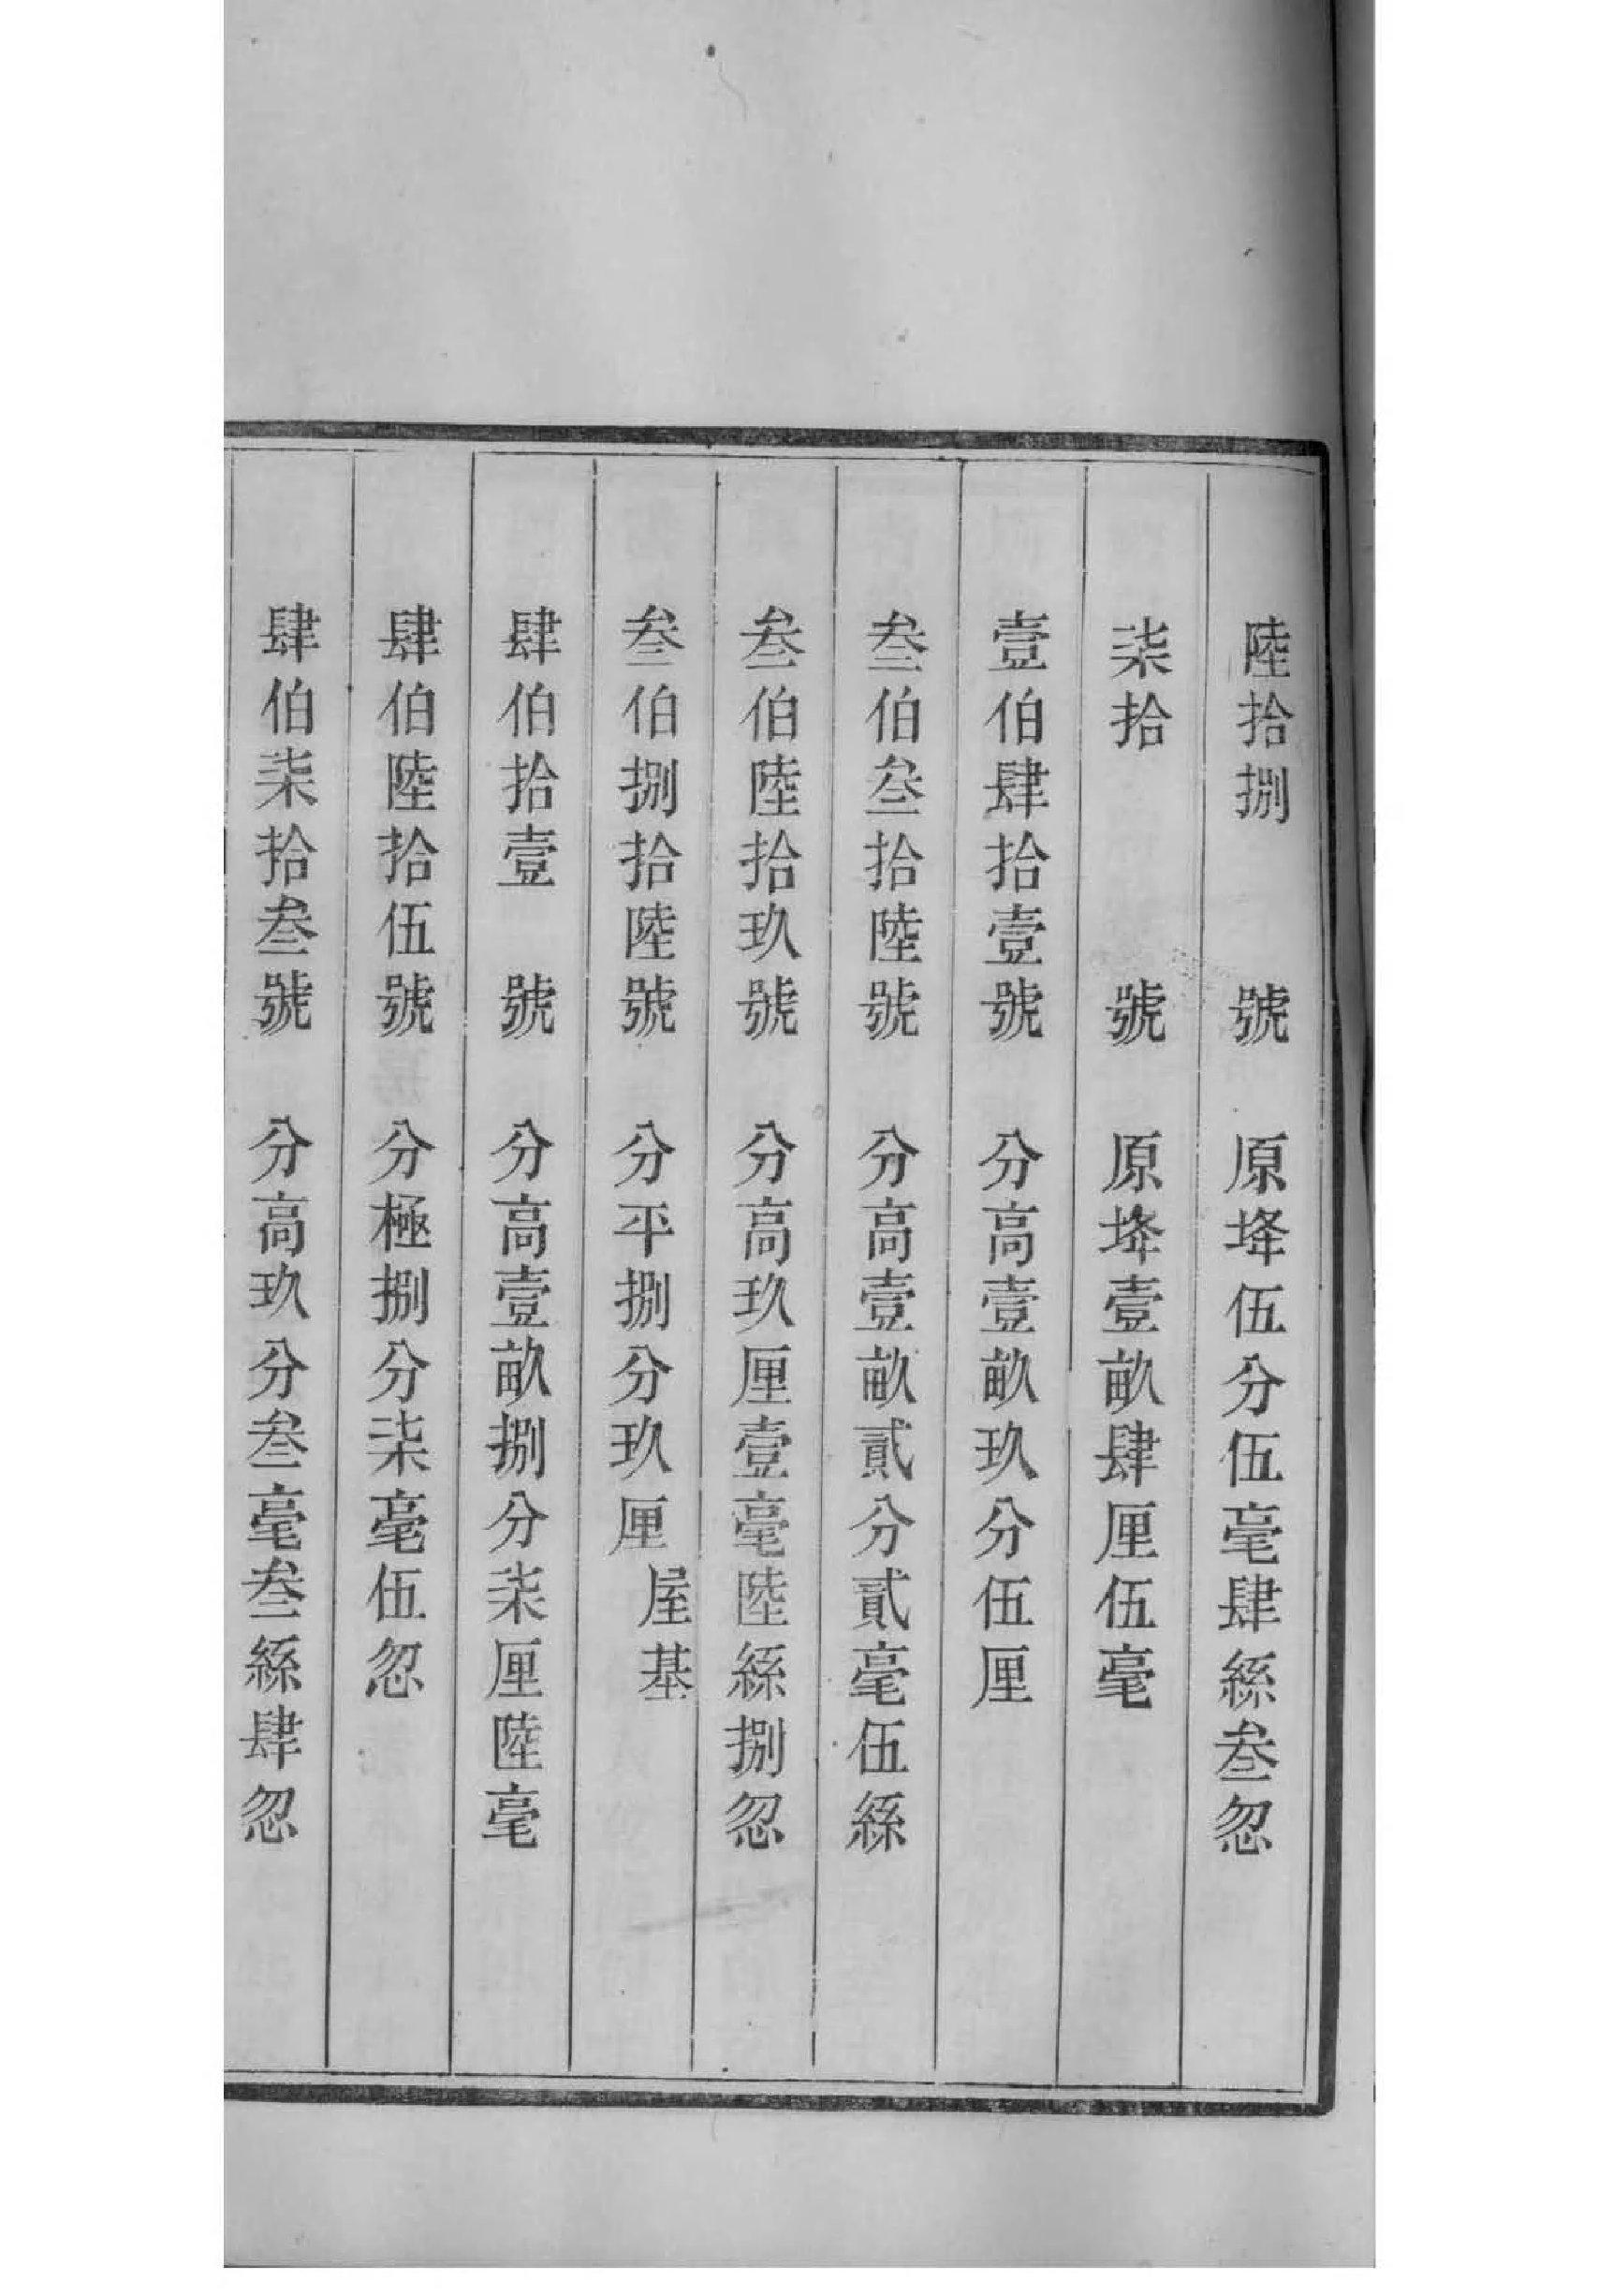 陸拾捌　號　原埄伍分伍毫肆絲叁忽
柒拾　號　原埄壹畝肆厘伍毫
壹伯肆拾壹號　分高壹畝玖分伍厘
叁伯叁拾陸號　分高壹畝貳分貳毫伍絲
叁伯陸拾玖號　分高玖厘壹毫陸絲捌忽
叁伯捌拾陸號　分平捌分玖厘屋基
肆伯拾壹　號　分高壹畝捌分柒厘陸毫
肆伯陸拾伍號　分極捌分柒毫伍忽
肆伯柒拾叁號　分高玖分叁毫叁絲肆忽